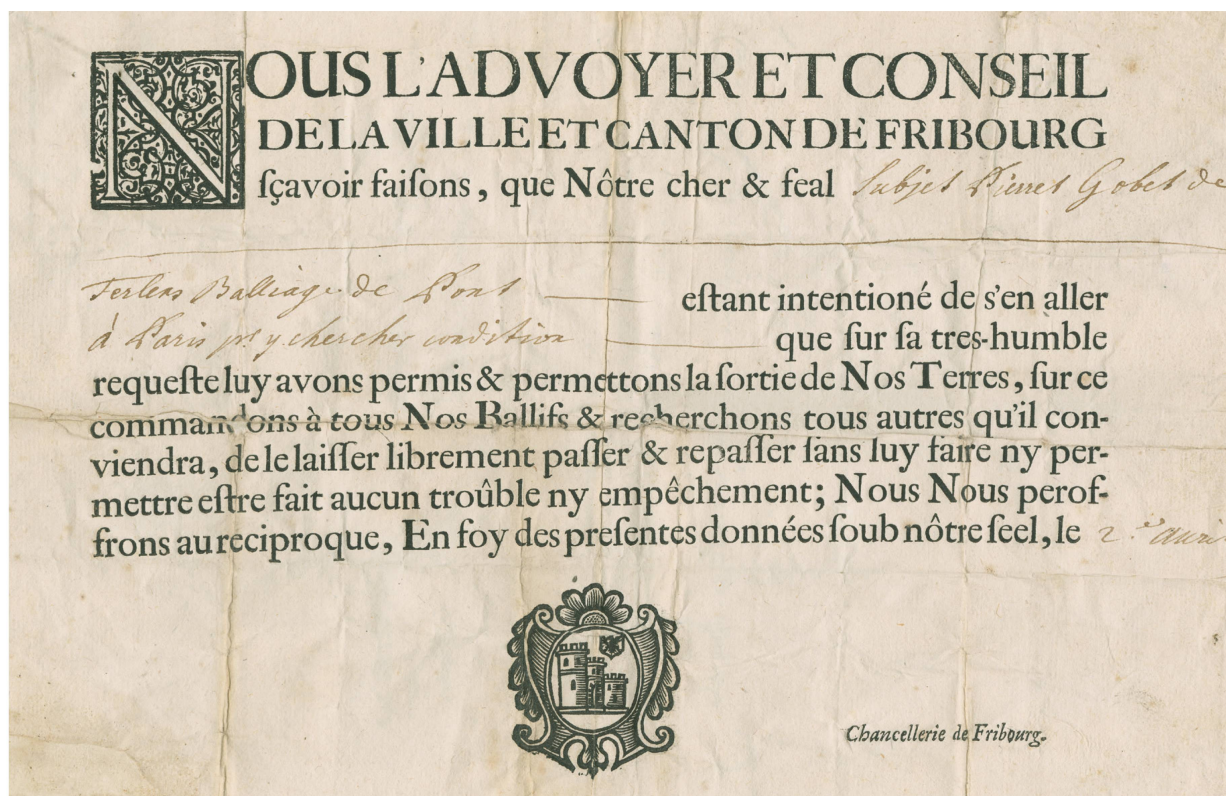 NOUS L'ADVOYER ET CONSEIL
DE LA VILLE ET CANTON DE FRIBOURG
sçavoir faisons, que Nôtre cher & feal Subjet Pierre Gobet de
Ferlens Balliage de Pont estant intentioné de s'en aller
à Paris pr. y chercher condition que sur sa tres-humble
requeste luy avons permis & permettons la sortie de Nos Terres, sur ce
commandons à tous Nos Ballifs & recherchons tous autres qu'il con-
viendra, de le laisser librement passer & repasser sans luy faire ny per-
mettre estre fait aucun troûble ny empêchement; Nous Nous perof-
frons au reciproque, En foy des presentes données soub nôtre seel, le 2.e
Chancellerie de Fribourg.